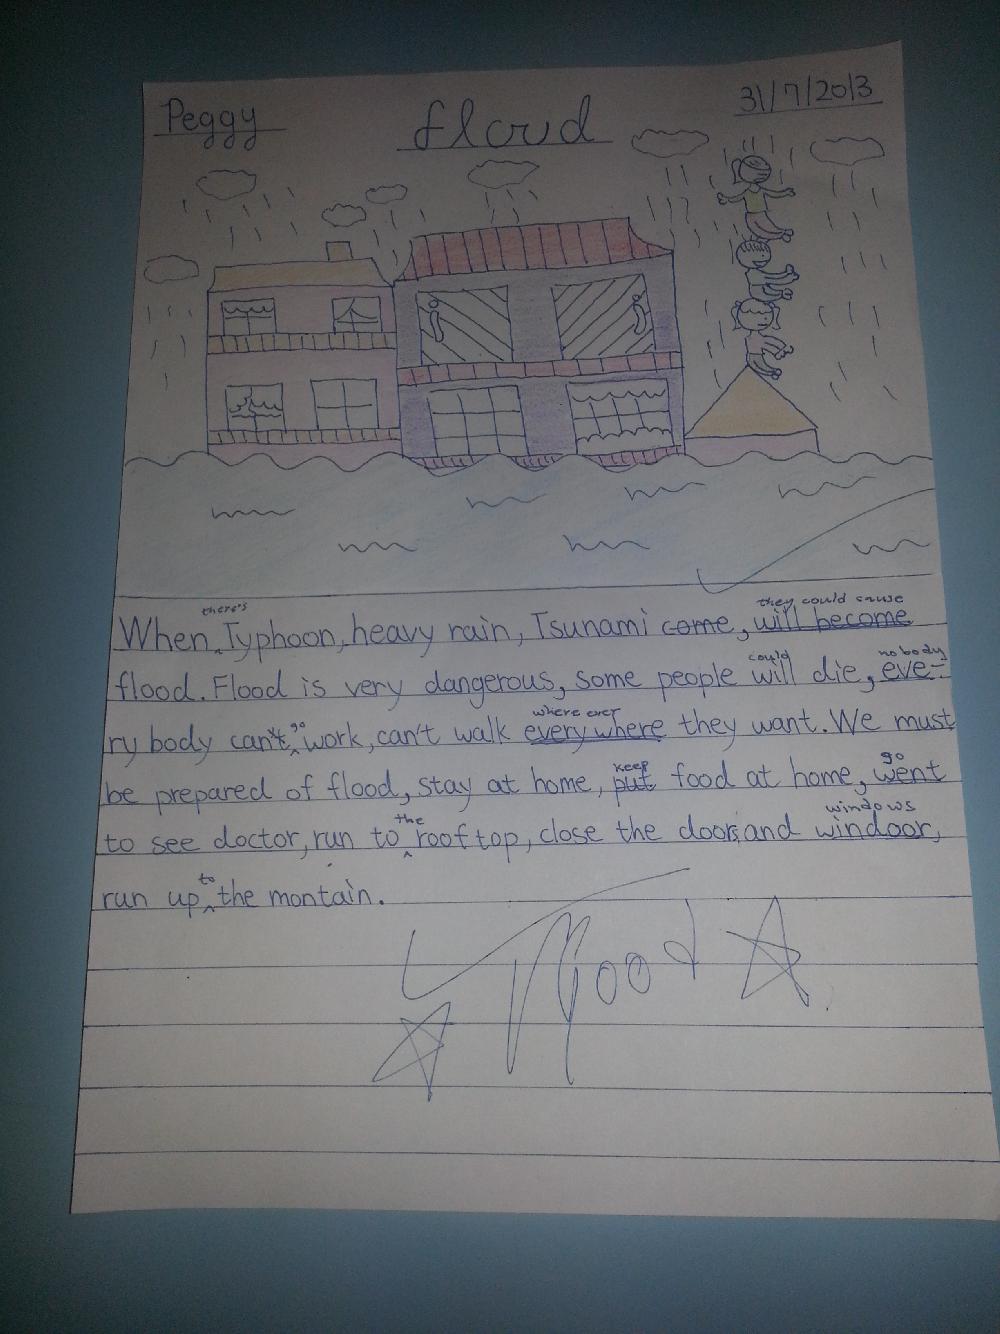 Peggy
flood
31/7/2013
there's
they could cause
When Typhoon, heavy rain, Tsunami come, will become
could
nobody
flood. Flood is very dangerous, some people will die, eve-
go
where ever
ry body can't work, can't walk everywhere they want. We must
keep
go
be prepared of flood, stay at home, put food at home, went
the
windows
to see doctor, run to roof top, close the doors and windoor,
to
run up the montain.